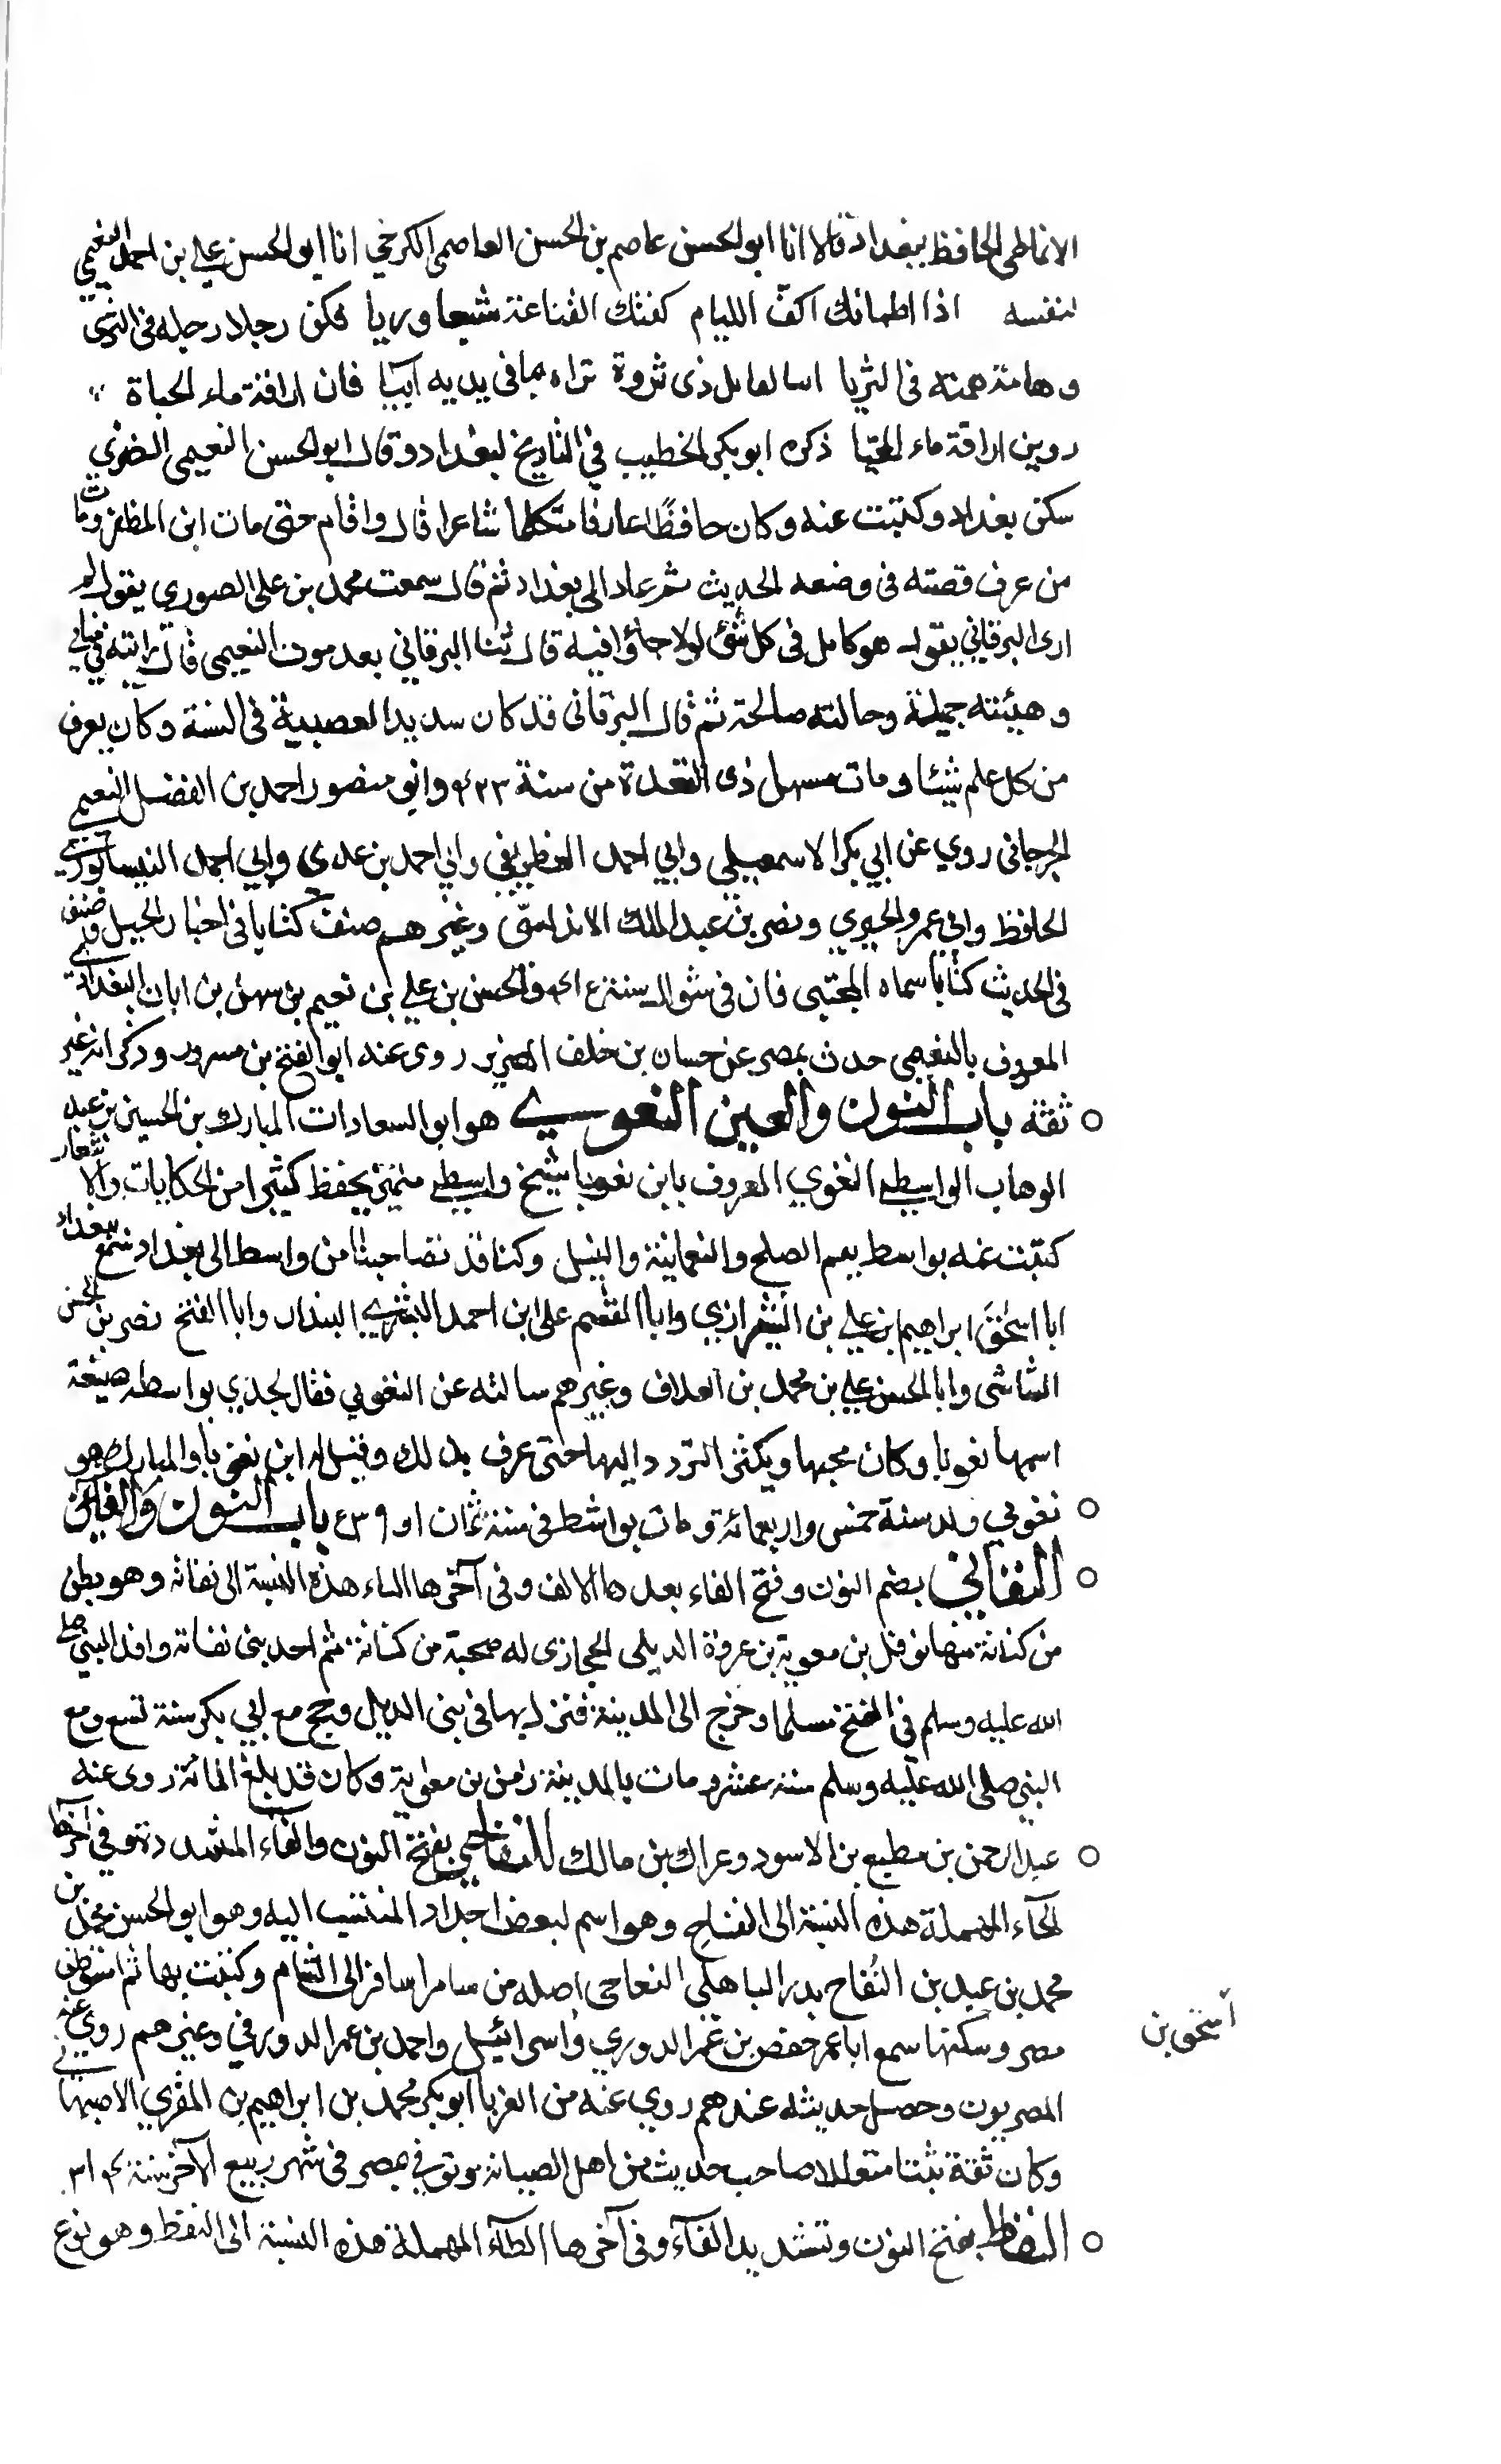 الانماطى الحافظ ببغداد قالا انا ابو الحسن عاصم بن الحسن العاصمى الكرخي انا ابو الحسن علي بن احمد النعيمي
لنفسه اذا اظمانك اكفّ الليام كفتك القناعة شبعا وريا فكن رجلا رجله فى الثرى
وهامة همته فى الثريا ابيا لنايل ذى ثروة تراه بما فى يديه ابيا فان اراقة ماء الحياة
دون اراقة ماء المحيا ذكره ابو بكر الخطيب في التاريخ لبغداد وقال ابو الحسن النعيمى البصري
سكن بغداد وكتبت عنه وكان حافظًا عارفا متكلما شاعرا قال واقام حتى مات ابن المظفر ومات
من عرف قصته فى وضعه الحديث ثم عاد الى بغداد ثم قال سمعت محمد بن على الصوري يقول لم
ارى البرقاني يقول هو كامل فى كل شئ لولا بأو فيه قال ثنا البرقاني بعد موت النعيمى قال رايته في منامي
وهيئته جميلة وحالته صالحة ثم قال البرقانى قد كان شديد العصبية فى السنة وكان يعرف
من كل علم شيئا ومات مستهل ذى القعدة من سنة ٤٢٣ وابو منصور احمد بن الفضل النعيمي
الجرجانى روي عن ابي بكر الاسمعيلى وابي احمد الغطريفي وابي احمد بن عدى وابي احمد النيسابوري
الحافظ وابي عمرو الحيري ونصر بن عبد الملك الاندلسى وغيرهم صنف كتابا فى اخبار الجبل وصنف
فى الحديث كتابا سماه المجتبى فات فى شوال سنة ٤١٥ والحسن بن علي بن نعيم بن سهل بن ابان البغدادي
المعروف بالنعيمى حدث بمصر عن حسان بن خلف الضرير روى عنه ابو الفتح بن مسرور وذكر انه غير
ثقة باب النون والغين النغوي هو ابو السعادات المبارك بن الحسين بن عبد
الوهاب الواسطي النغوي المعروف بابن نغوبا شيخ واسطي متميز يحفظ كثيرا من الحكايات والاشعار
كتبت عنه بواسط بفم الصلح والنعمانية والنيل وكنا قد تصاحبنا من واسط الى بغداد سمع ببغداد
ابا اسحق ابراهيم بن علي بن الشيرازي وابا القسم على بن احمد البسري البندار وابا الفتح نصر بن الحسن
الشاشى وابا الحسن علي بن محمد بن العلاف وغيرهم سالته عن النغوبي فقال لجدي بواسط ضيعة
اسمها نغوبا وكان يحبها ويكثر التردد اليها حتى عرف بذلك وقيل له ابن نغوبا والمبارك هو
نغوبي ولد سنة خمس واربعمائة ومات بواسط فى سنة ثمان او ٥٣٩ باب النون والفاء
النفاثي بضم النون وفتح الفاء بعدها الالف وفى آخرها الثاء هذه النسبة الى نفاثة وهو بطن
من كنانة منها نوفل بن معوية بن عروة الديلى الحجازى له صحبة من كنانة ثم احد بنى نفاثة وافد النبي صلى
الله عليه وسلم في الفتح مسلما وخرج الى المدينة فنزلها فى بنى الديل وحج مع ابي بكر سنة تسع ومع
النبي صلى الله عليه وسلم سنة عشر ومات بالمدينة زمن بن معوية وكان قد بلغ المائة روى عنه
عبد الرحمن بن مطيع بن الاسود وعراك بن مالك النفاحي بفتح النون والفاء المشددة وفي آخرها
الحآء المهملة هذه النسبة الى النفاح وهو اسم لبعض اجداد المنتسب اليه وهو ابو الحسن محمد بن
محمد بن عبد بن النُفاح بدر الباهلى النفاحى اصله من سامرا سافر الى الشام وكتبت بها ثم استوطن
مصر وسكنها سمع ابا عمر حفص بن عمر الدوري واسرائيل واحمد بن عمر الدورقي وغيرهم روي عنه
اسحق بن
المصريون وحصل حديثه عندهم روي عنه من الغربا ابو بكر محمد بن ابراهيم بن المقري الاصبهاني
وكان ثقة ثبتا متقللا صاحب حديث من اهل الصيانة توفي بمصر فى شهر ربيع الآخر سنة ٣١٤
النفاط بفتح النون وتشديد الفآء وفى آخرها الطآء المهملة هذه النسبة الى النفط وهو نوع